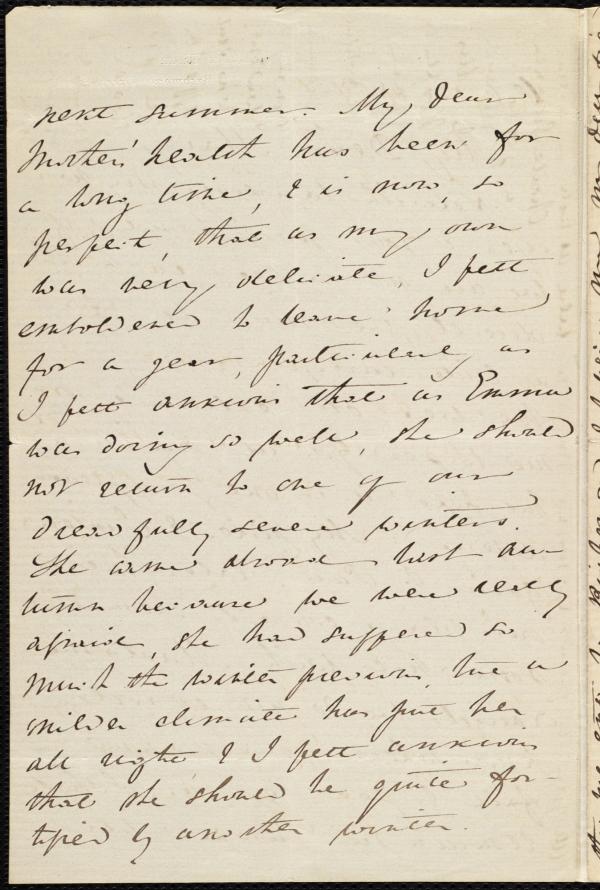 next summer. My dear
Mother's health has been for
a long time, & is now, so
perfect, that as my own
was very delicate, I felt
emboldened to leave home
for a year, particularly as
I felt anxious that as Emma
was doing so well, she should
not return to one of our
dreadfully severe winters.
She came abroad last au-
tumn because we were really
afraid, she had suffered so
much the winter previous, but a
milder climate has put her
all right & I felt anxious
that she should be quite for-
tified by another winter.